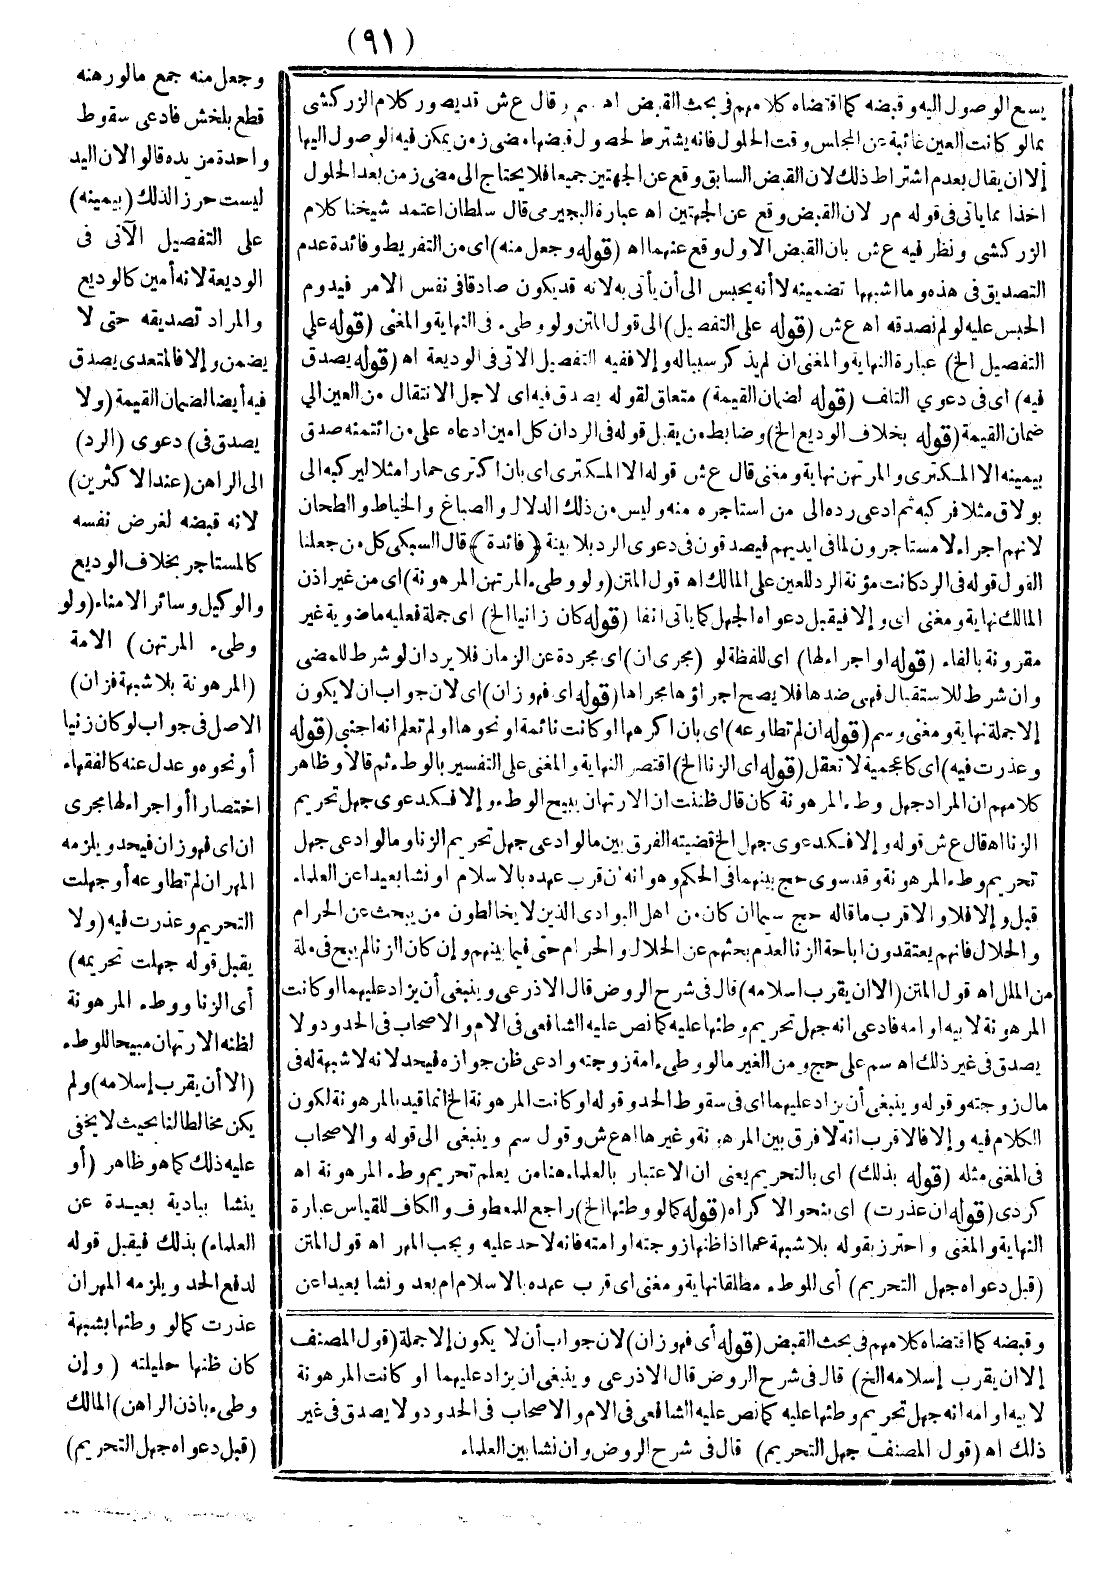 (٩١)
وجعل منه جمع مالو رهنه
قطع بلخش فادعى سقوط
واحدة من يده قالوا لان اليد
ليست حرز الذلك (بيمينه)
على التفصيل الآتى فى
الوديعة لانه أمين كالوديع
والمراد تصديقه حتى لا
يضمن وإلا فالمتعدى يصدق
فيه أيضا لضمان القيمة (ولا
يصدق فى) دعوى (الرد)
الى الراهن (عند الاكثرين)
لانه قبضه لغرض نفسه
كالمستاجر بخلاف الوديع
والوكيل وسائر الامناء (ولو
وطىء المرتهن) الامة
(المرهونة بلا شبهة فزان)
الاصل فى جواب لو كان زنيا
أو نحوه وعدل عنه كالفقهاء
اختصارا أو اجراء لها مجرى
ان اى فهو زان فيحد ويلزمه
المهر ان لم تطاوعه أو جهلت
التحريم وعذرت فيه (ولا
يقبل قوله جهلت تحريمه)
أى الزنا ووطء المرهونة
لظنه الارتهان مبيحا للوطء
(الا أن يقرب إسلامه) ولم
يكن مخالطا لنا بحيث لا يخفى
عليه ذلك كما هو ظاهر (أو
ينشا ببادية بعيدة عن
العلماء) بذلك فيقبل قوله
لدفع الحد ويلزمه المهر ان
عذرت كما لو وطئها بشبهة
كان ظنها حليلته (وإن
وطىء باذن الراهن) المالك
(قبل دعواه جهل التحريم)
يسع الوصول اليه وقبضه كما اقتضاه كلامهم فى بحث القبض اه سم وقال ع ش قد يصور كلام الزركشى
بمالو كانت العين غائبة عن المجلس وقت الحلول فانه يشترط لحصول قبضها مضى زمن يمكن فيه الوصول اليها
إلا ان يقال بعدم اشتراط ذلك لان القبض السابق وقع عن الجهتين جميعا فلا يحتاج الى مضى زمن بعد الحلول
اخذا مما ياتى فى قوله م ر لان القبض وقع عن الجهتين اه عبارة البجيرمى قال سلطان اعتمد شيخنا كلام
الزركشى ونظر فيه ع ش بان القبض الاول وقع عنهما اه (قوله وجعل منه) اى من التفريط وفائدة عدم
التصديق فى هذه وما اشبهها تضمينه لا أنه يحبس الى أن يأتى به لانه قد يكون صادقا فى نفس الامر فيدوم
الحبس عليه لو لم نصدقه اه ع ش (قوله على التفصيل) الى قول المتن ولو وطىء فى النهاية والمغنى (قوله على
التفصيل الخ) عبارة النهاية والمغنى ان لم يذكر سببا له وإلا ففيه التفصيل الاتى فى الوديعة اه (قوله يصدق
فيه) اى فى دعوى التلف (قوله لضمان القيمة) متعلق لقوله يصدق فيه اى لاجل الانتقال من العين الى
ضمان القيمة (قوله بخلاف الوديع الخ) وضابط من يقبل قوله فى الرد ان كل امين ادعاه على من ائتمنه صدق
بيمينه الا المكترى والمرتهن نهاية ومغنى قال ع ش قوله الا المكترى اى بان اكترى حمارا مثلا ليركبه الى
بولاق مثلا فركبه ثم ادعى رده الى من استاجره منه وليس من ذلك الدلال والصباغ والخياط والطحان
لانهم اجراء لا مستاجرون لما فى ايديهم فيصدقون فى دعوى الرد بلا بينة (فائدة) قال السبكى كل من جعلنا
القول قوله فى الرد كانت مؤنة الرد للعين على المالك اه قول المتن (ولو وطىء المرتهن المرهونة) اى من غير اذن
المالك نهاية ومغنى اى وإلا فيقبل دعواه الجهل كما ياتى انفا (قوله كان زانيا الخ) اى جملة فعليه ماضوية غير
مقرونة بالفاء (قوله او اجراء لها) اى للفظة لو (مجرى ان) اى مجردة عن الزمان فلا يرد ان لو شرط للمضى
وان شرط للاستقبال فهى ضدها فلا يصح اجراؤها مجراها (قوله اى فهو زان) اى لان جواب ان لا يكون
إلا جملة نهاية ومغنى وسم (قوله ان لم تطاوعه) اى بان اكرهها او كانت نائمة او نحوها او لم تعلم انه اجنبى (قوله
وعذرت فيه) اى كاعجمية لا تعقل (قوله اى الزنا الخ) اقتصر النهاية والمغنى على التفسير بالوطء ثم قالا وظاهر
كلامهم ان المراد جهل وطء المرهونة كان قال ظننت ان الارتهان يبيح الوطء وإلا فكدعوى جهل تحريم
الزنا اه قال ع ش قوله وإلا فكدعوى جهل الخ قضيته الفرق بين مالو ادعى جهل تحريم الزنا ومالو ادعى جهل
تحريم وطء المرهونة وقد سوى حج بينهما فى الحكم وهو انه ان قرب عهده بالاسلام او نشا بعيدا عن العلماء
قبل وإلا فلا والاقرب ما قاله حج سيما ان كان من اهل البوادى الذين لا يخالطون من يبحث عن الحرام
والحلال فانهم يعتقدون اباحة الزنا لعدم بحثهم عن الحلال والحرام حتى فيما بينهم وإن كان الزنا لم يبح فى ملة
من الملل اه قول المتن (الا ان يقرب اسلامه) قال فى شرح الروض قال الاذرعى وينبغى أن يزاد عليهما او كانت
المرهونة لابيه او امه فادعى انه جهل تحريم وطئها عليه كما نص عليه الشافعى فى الام والاصحاب فى الحدود ولا
يصدق فى غير ذلك اه سم على حج ومن الغير مالو وطىء امة زوجته وادعى ظن جوازه فيحد لانه لا شبهة له فى
مال زوجته وقوله وينبغى أن يزاد عليهما اى فى سقوط الحد وقوله او كانت المرهونة الخ انما قيد بالمرهونة لكون
الكلام فيه وإلا فالاقرب انه لا فرق بين المرهونة وغيرها اه ع ش وقول سم وينبغى الى قوله والاصحاب
فى المغنى مثله (قوله بذلك) اى بالتحريم يعنى ان الاعتبار بالعلماء هنا من يعلم تحريم وطء المرهونة اه
كردى (قوله ان عذرت) اى بنحو الاكراه (قوله كما لو وطئها الخ) راجع للمعطوف والكاف للقياس عبارة
النهاية والمغنى واحترز بقوله بلا شبهة عما اذا ظنها زوجته او امته فانه لا حد عليه ويجب المهر اه قول المتن
(قبل دعواه جهل التحريم) أى للوطء مطلقا نهاية ومغنى اى قرب عهده بالاسلام ام بعد ونشا بعيدا عن
وقبضه كما اقتضاه كلامهم فى بحث القبض (قوله أى فهو زان) لان جواب أن لا يكون إلا جملة (قول المصنف
إلا ان يقرب إسلامه الخ) قال فى شرح الروض قال الاذرعى وينبغى ان يزاد عليهما او كانت المرهونة
لابيه او امه انه جهل تحريم وطئها عليه كما نص عليه الشافعى فى الام والاصحاب فى الحدود ولا يصدق فى غير
ذلك اه (قول المصنف جهل التحريم) قال فى شرح الروض وان نشا بين العلماء